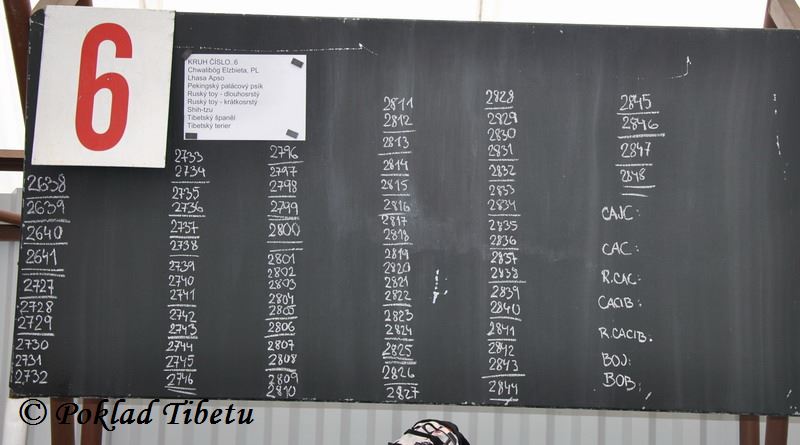 6
KRUH ČÍSLO..6
Chwalibóg Elzbieta, PL
Lhasa Apso
Pekingský palácový psík
Ruský toy - dlouhosrstý
Ruský toy - krátkosrstý
Shih-tzu
Tibetský španěl
Tibetský terier
2638
2639
2640
2641
2727
2728
2729
2730
2731
2732
2733
2734
2735
2736
2737
2738
2739
2740
2741
2742
2743
2744
2745
2746
2796
2797
2798
2799
2800
2801
2802
2803
2804
2805
2806
2807
2808
2809
2810
2811
2812
2813
2814
2815
2816
2817
2818
2819
2820
2821
2822
2823
2824
2825
2826
2827
2828
2829
2830
2831
2832
2833
2834
2835
2836
2837
2838
2839
2840
2841
2842
2843
2844
2845
2846
2847
2848
CAJC:
CAC:
R.CAC:
CACIB:
R.CACIB.
BOJ:
BOB:
© Poklad Tibetu